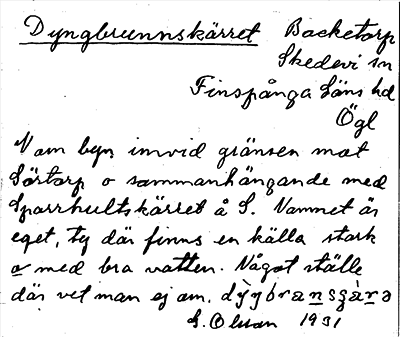 Dyngbrunnskärret Backetorp
Skedevi sn
Finspånga läns hd
Ögl
N om byn invid gränsen mot
Sörtorp o sammanhängande med
Sparrhultskärret å S. Namnet är
eget, ty där finns en källa stark
o med bra vatten. Något ställe
där vet man ej om. dỳŋbransçàra
G. Olsson 1931